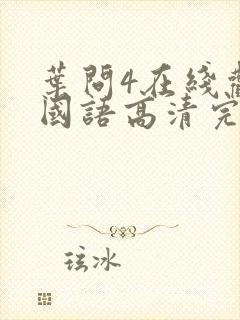 葉問4在綫
國語高清完
玹冰